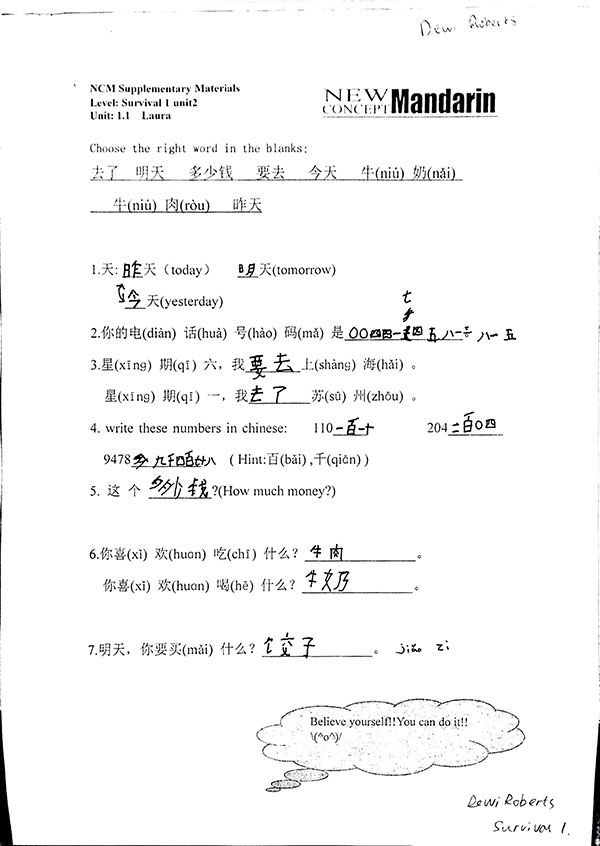 Dewi Roberts
NCM Supplementary Materials
Level: Survival 1 unit2
Unit: 1.1 Laura
NEW CONCEPT Mandarin
Choose the right word in the blanks:
去了 明天 多少钱 要去 今天 牛(niú) 奶(nǎi)
牛(niú) 肉(ròu) 昨天
1.天: 昨天（today） 明天(tomorrow)
今天(yesterday)
七
2.你的电(diàn) 话(huà) 号(hào) 码(mǎ) 是 00四四一 四五八一 八一五
3.星(xīng) 期(qī) 六，我要去上(shàng) 海(hǎi) 。
星(xīng) 期(qī) 一，我去了苏(sū) 州(zhōu) 。
4. write these numbers in chinese: 110 一百一十 204 二百0四
9478 九千四百 八 ( Hint:百(bǎi) ,千(qiān) )
5. 这 个 多少钱?(How much money?)
6.你喜(xǐ) 欢(huɑn) 吃(chī) 什么? 牛肉 。
你喜(xǐ) 欢(huɑn) 喝(hē) 什么? 牛奶 。
7.明天，你要买(mǎi) 什么? 饺子 。 jiǎo zi
Believe yourself!!You can do it!!
\(^o^)/
Dewi Roberts
Survival 1.